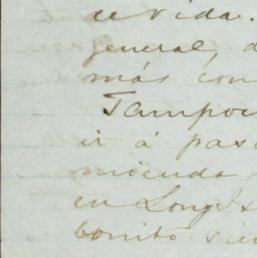 de vida.
general, d
más con
Tampoc
ir á pas
mienda
en Long Is
bonito sie